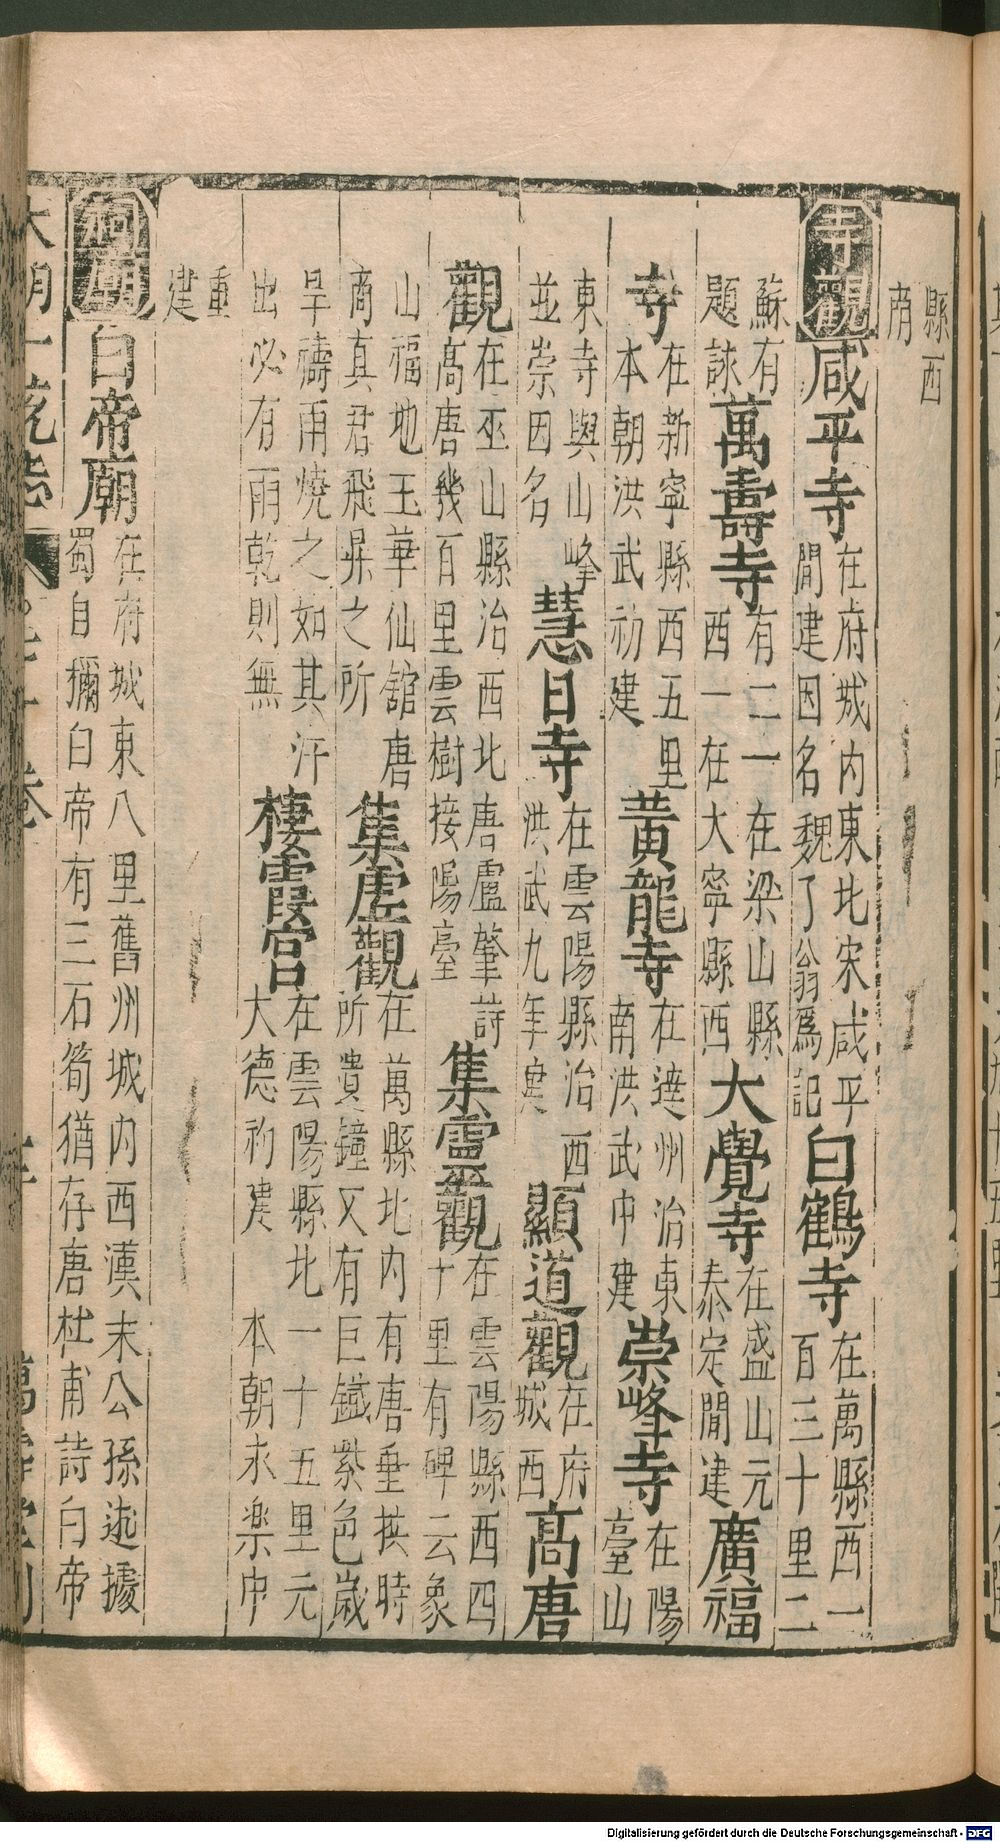 縣西
南
寺觀 咸平寺 在府城内東北宋咸平
間建因名魏了翁爲記 白鶴寺 在萬縣西一
百三十里二
蘇有
題詠 萬壽寺 有二一在梁山縣
西一在大寧縣西 大覺寺 在盛山元
泰定間建 廣福
寺 在新寧縣西五里
本朝洪武初建 黄龍寺 在達州治東
南洪武中建 崇峰寺 在陽
臺山
東寺與山峰
並崇因名 慧日寺 在雲陽縣治西
洪武九年建 顯道觀 在府
城西 高唐
觀 在巫山縣治西北唐盧肇詩
高唐幾百里雲樹接陽臺 集靈觀 在雲陽縣西四
十里有碑云象
山福地玉華仙舘唐
商真君飛昇之所 集虚觀 在萬縣北内有唐垂拱時
所遺鐘又有巨鐡紫色歲
旱禱雨燒之如其汗
出必有雨乾則無 棲霞宫 在雲陽縣北一十五里元
大德初建 本朝永樂中
重
建
祠廟 白帝廟 在府城東八里舊州城内西漢末公孫述據
蜀自彌白帝有三石筍猶存唐杜甫詩白帝